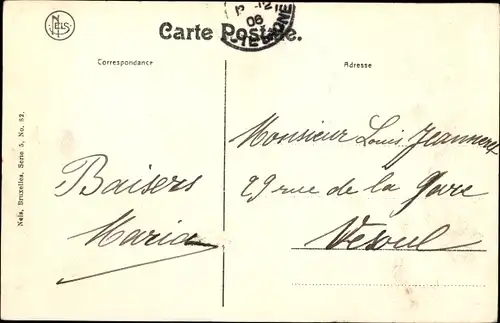 NELS
12
06
Carte Postale.
Correspondance
Adresse
Nels, Bruxelles, Serie 5, No. 62.
Baisers
Maria
Monsieur Louis
29 rue de la Gare
Vesoul